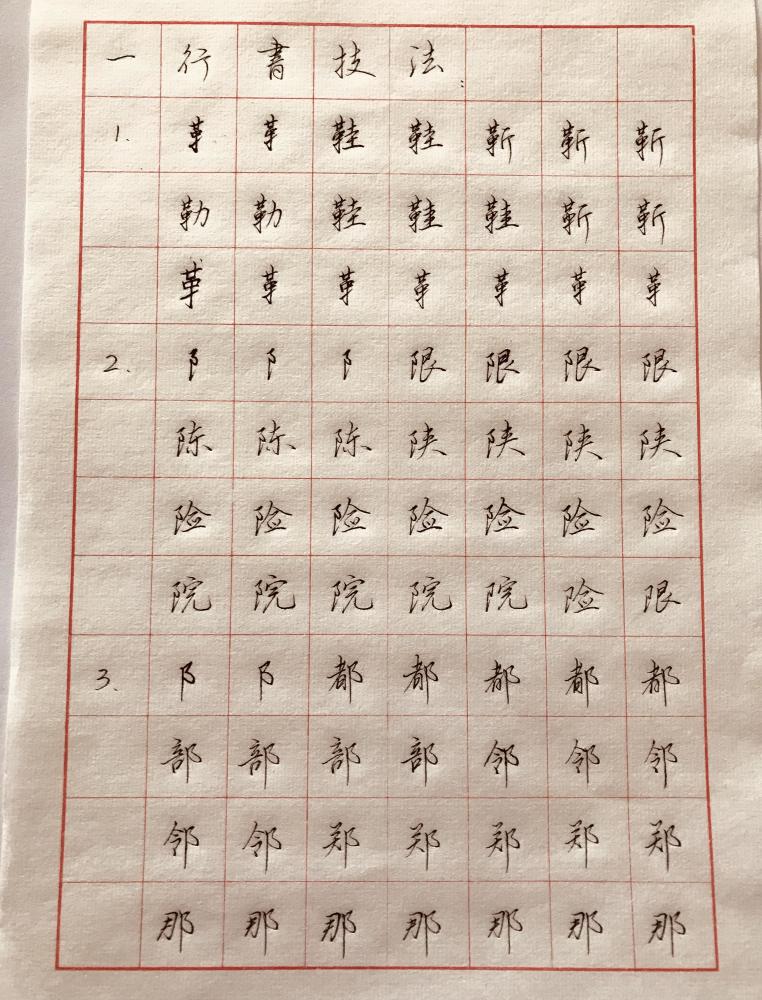 一行書技法
1. 革革鞋鞋靳靳靳
勒勒鞋鞋鞋靳靳
革革革革革革革
2. 阝阝阝限限限限
陈陈陈陕陕陕陕
险险险险险险险
院院院院院险限
3. 阝阝都都都都都
部部部部邻邻邻
邻邻郑郑郑郑郑
那那那那那那那